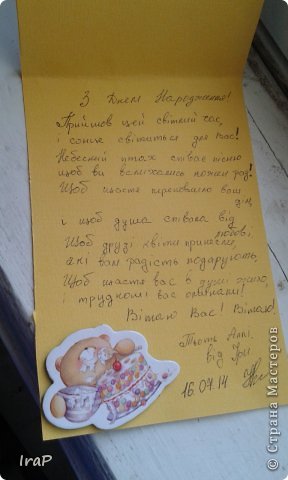 З Днем Народження!
Прийшов цей світлий час,
і сонце світиться для Вас!
Небесний птах співає пісню
щоб ви
Щоб щастя переповнило ваш
дім,
і щоб душа співала від
любові,
Щоб друзі квіти принесли,
які вам радість подарують,
Щоб щастя вас в душі
і труднощі вас оминали!
Вітаю Вас! Вітаю!
від Іри
16.07.14
IraP
© Страна Мастеров